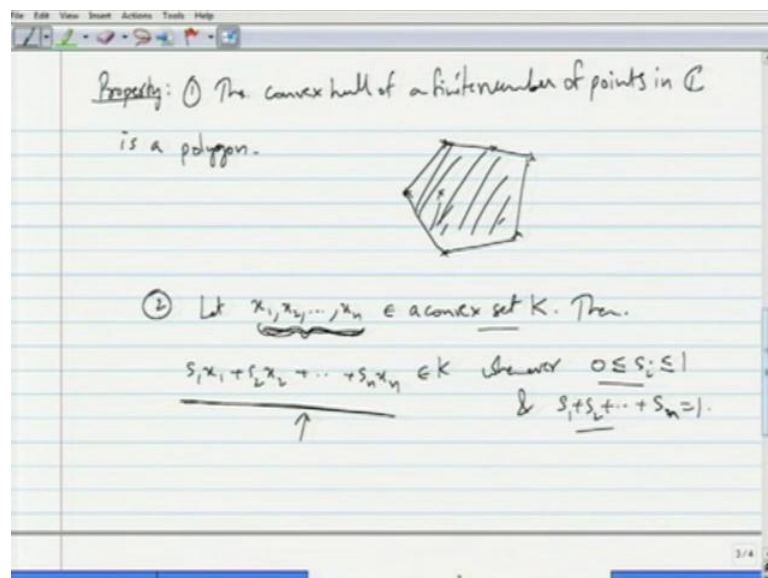 File Edit View Insert Actions Tools Help
Property: ① The convex hull of a finite number of points in ℂ
is a polygon.
② Let x₁, x₂, ..., xₙ ∈ a convex set K. Then.
s₁x₁ + s₂x₂ + ... + sₙxₙ ∈ K whenever 0 ≤ sᵢ ≤ 1
& s₁+s₂+...+sₙ=1.
3/4